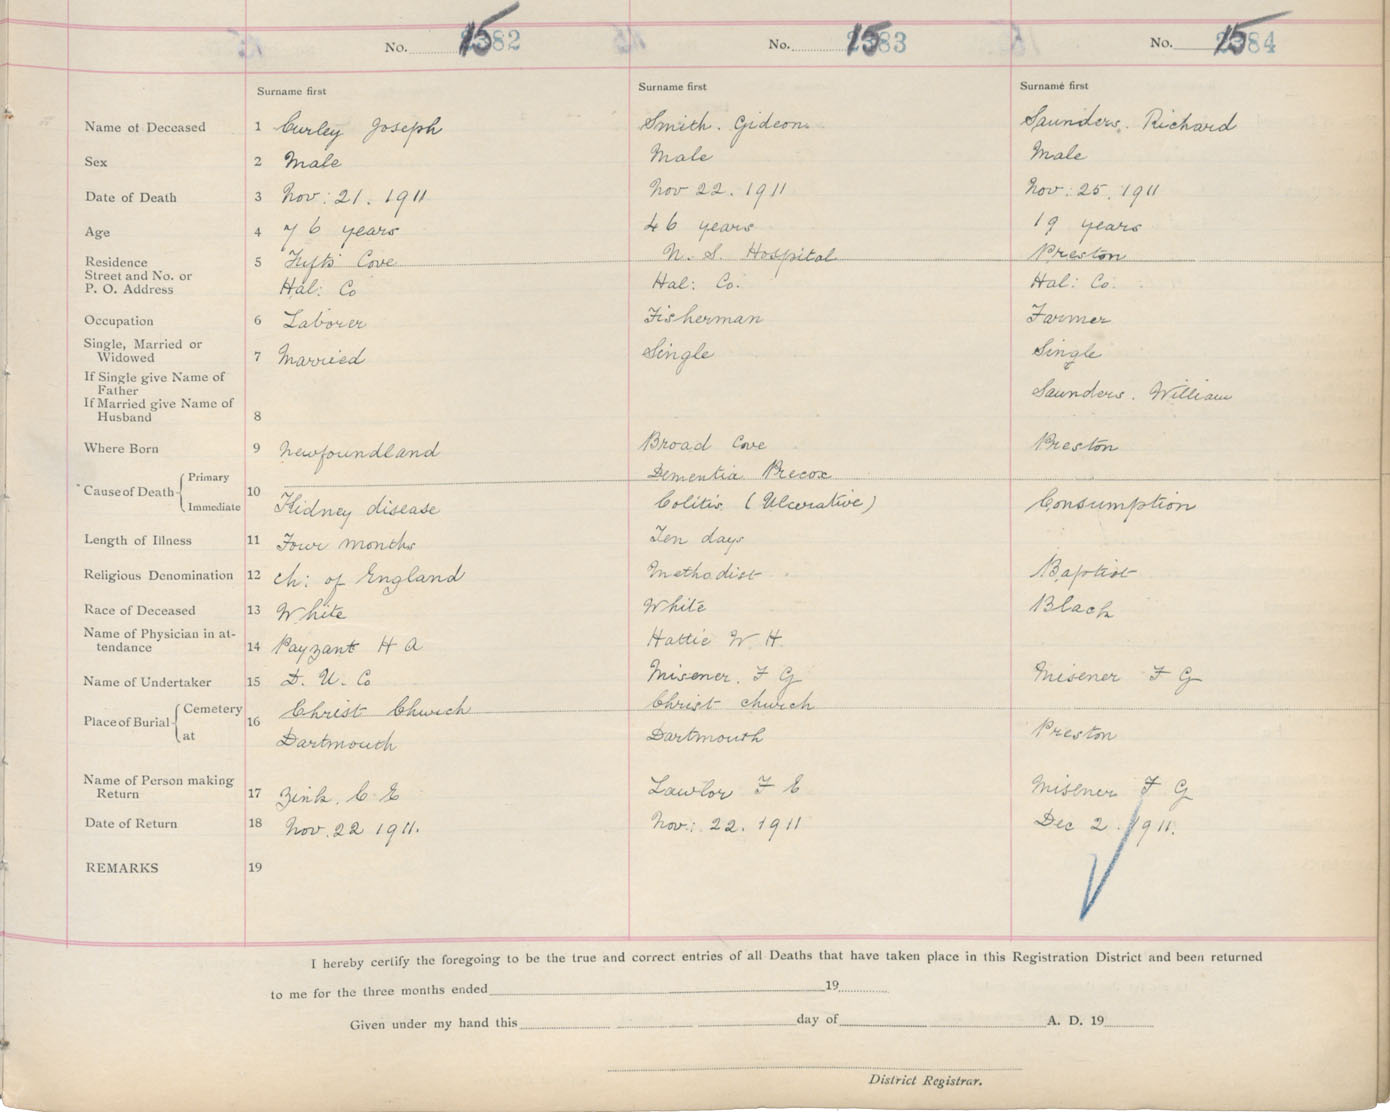 No. 15 2382 No. 15 2383 No. 15 2384
Surname first Surname first Surname first
Name of Deceased 1 Curley Joseph Smith. Gideon. Saunders. Richard
Sex 2 Male Male Male
Date of Death 3 Nov: 21. 1911 Nov 22. 1911 Nov: 25. 1911
Age 4 76 years 46 years 19 years
Residence 5 Tufts Cove N. S. Hospital Preston
Street and No. or
P. O. Address Hal: Co Hal: Co. Hal: Co.
Occupation 6 Laborer Fisherman Farmer
Single, Married or
Widowed 7 Married Single Single
If Single give Name of
Father Saunders. William
If Married give Name of
Husband 8
Where Born 9 Newfoundland Broad Cove Preston
Primary Dementia Precox
Cause of Death 10
Immediate Kidney disease Colitis (Ulcerative) Consumption
Length of Illness 11 Four months Ten days
Religious Denomination 12 Ch: of England Methodist Baptist
Race of Deceased 13 White White Black
Name of Physician in at-
tendance 14 Payzant H A Hattie W H
Name of Undertaker 15 D. U. Co Misener. F G Misener F G
Cemetery Christ Church Christ church
Place of Burial 16
at Dartmouth Dartmouth Preston
Name of Person making
Return 17 Zink. C E Lawlor F E Misener F G
Date of Return 18 Nov. 22 1911. Nov: 22. 1911 Dec 2. 1911.
REMARKS 19
I hereby certify the foregoing to be the true and correct entries of all Deaths that have taken place in this Registration District and been returned
to me for the three months ended 19
Given under my hand this day of A. D. 19
District Registrar.